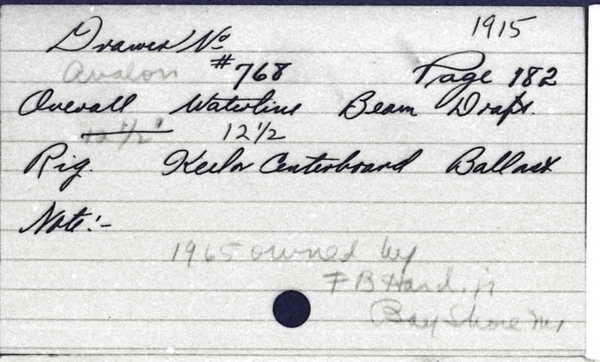 1915
Drawer No
Avalon #768 Page 182
Overall Waterline Beam Draft.
12 1/2' 12 1/2
Rig. Keel or Centerboard Ballast
Note:-
1965 owned by
F B Hard. jr
Bay Shore NY